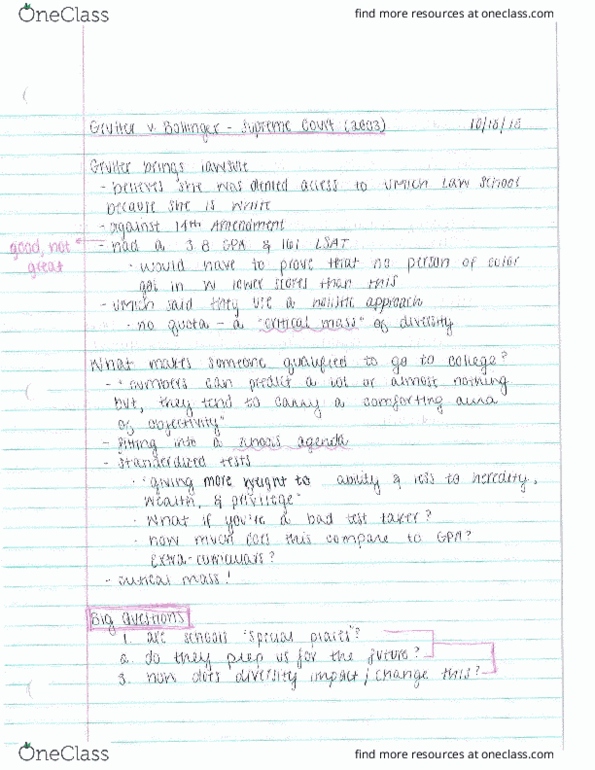 OneClass
find more resources at oneclass.com
Grutter v. Bollinger - Supreme Court (2003) 10/18/18
Grutter brings lawsuit
- believes she was denied access to UMich Law School
because she is white
- against 14th Amendment
good, not great
- had a 3.8 GPA & 161 LSAT
· would have to prove that no person of color
got in w lower scores than this
- UMich said they use a holistic approach
· no quota - a "critical mass" of diversity
What makes someone qualified to go to college?
- "numbers can predict a lot or almost nothing
but, they tend to carry a comforting aura
of objectivity"
- fitting into a school's agenda
- standardized tests
· "giving more weight to ability & less to heredity,
wealth, & privilege"
· What if you're a bad test taker?
· how much does this compare to GPA?
extra-curriculars?
- critical mass!
Big Questions
1. are schools "special places"?
2. do they prep us for the future?
3. how does diversity impact / change this?
OneClass
find more resources at oneclass.com